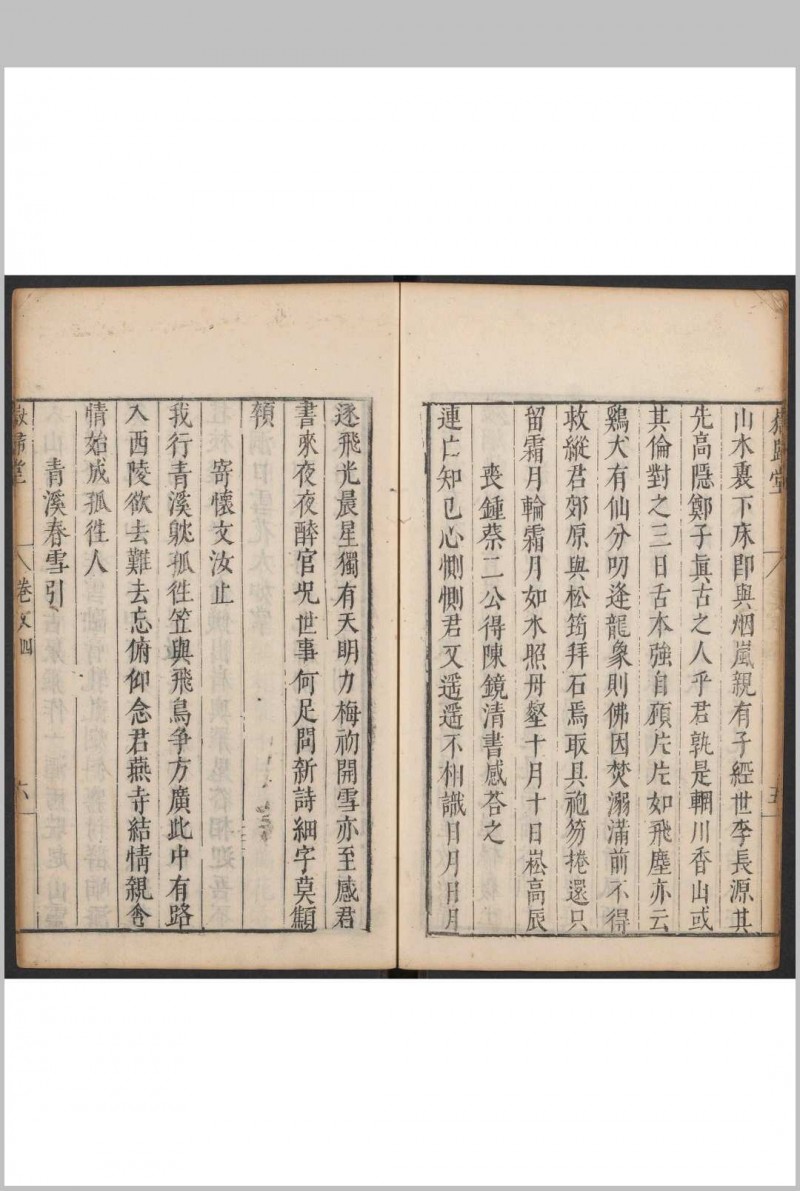 山水裏下床即與烟嵐親有子經世李長源其
先高隱鄭子眞古之人乎君孰是輞川香山或
其倫對之三日舌本強自顧片片如飛塵亦云
鷄犬有仙分叨逢龍象則佛因焚溺滿前不得
救縱君郊原與松筠拜石焉取具袍笏捲還只
留霜月輪霜月如水照丹壑十月十日崧高辰
喪鍾蔡二公得陳鏡清書感荅之
連亡知已心惻惻君又遥遥不相識日月日月
五
逐飛光晨星獨有天明力梅初開雪亦至感君
書來夜夜醉官況世事何足問新詩細字莫顰
頟
寄懷文汝止
我行青溪躭孤徃笠與飛鳥争方廣此中有路
入西陵欲去難去忘俯仰念君燕寺結情親舎
情始成孤徃人
青溪春雪引
歸堂
卷之四
六